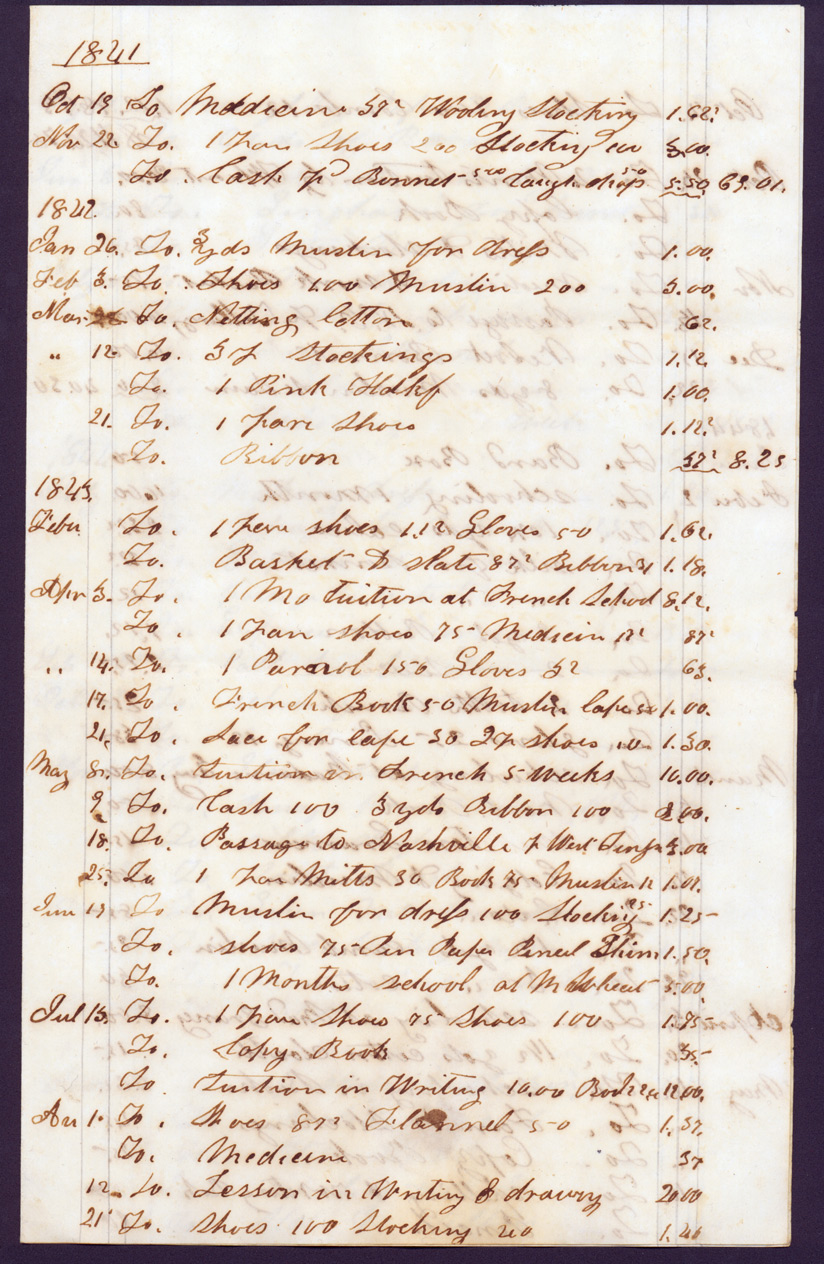 1841
Oct 19 To Medicin 37½ Wooling Stocking 1.62½
Nov 22 To. 1 pair Shoes 200 Stocking 100 3.00
To. Cash pd Bonnet 500 Cough drops 50 5.50 69.01.
1842.
Jan 26. To. 3 yds Muslin for dress 1.00.
Feb 3. To. Shoes 1.00 Muslin 200 3.00.
Mar To. Netting Cotton 62.
" 12. To. 3 p Stockings 1.12
To. 1 Pink Hdkf 1.00.
21. To. 1 pare Shoes 1.12½
To. Ribbon 37½ 8.25
1843.
Febu To. 1 pare shoes 1.12 Gloves 50 1.62.
To. Basket & slate 87½ Ribbon 31 1.18.
Apr 3. To. 1 Mo tuition at French School 8.12.
To. 1 pair shoes 75 Medicin 12½ 87½
" 14. To. 1 Parasol 150 Gloves
17. To. French Book 50 Muslin Cape 50 1.00.
21. To. Lace for Cape 30 2 p shoes 1.30.
May 8. To. tuition in French 5 weeks 10.00.
9 To. Cash 100 3 yds Ribbon 100 2.00.
18. To. Passage to Nashville p West 3.00
25. To 1 pair Mitts 30 Book 75 Muslin
June 19 To Muslin for dress 100 Stocking 25 1.25
To. shoes 75 Pen Paper Pencil 1.50.
To. 1 Months school at M Wheat 5.00
Jul 13. To. 1 pare Shoes 75 Shoes 100 1.75
To. Copy Book 35
To tuition in Writing 10.00 Book 12.00.
Au 1. To. Shoes 87½ Flannel 50 1.37.
To. Medicin 37
12. To. Lesson in Writing & drawing 20.00
21 To. shoes 100 Stocking 40 1.40